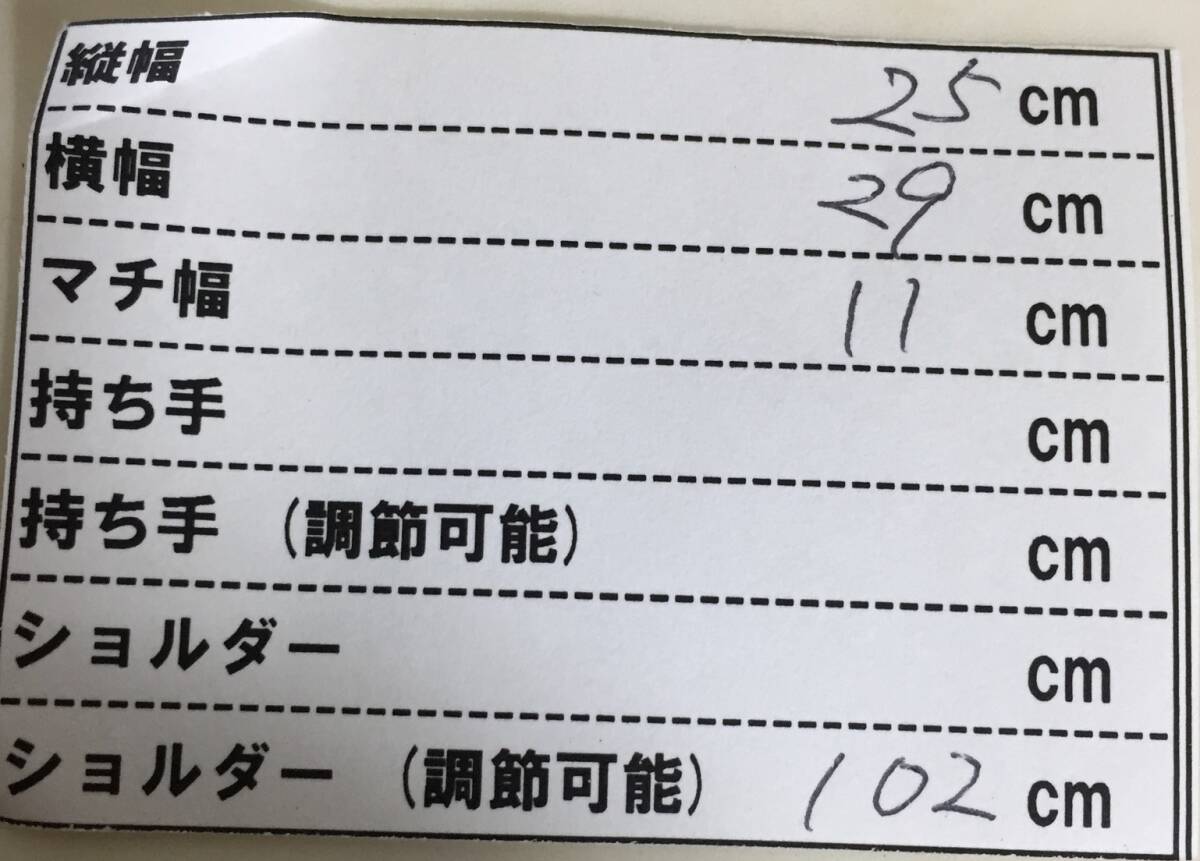 縦幅 25 cm
横幅 29 cm
マチ幅 11 cm
持ち手 cm
持ち手 (調節可能) cm
ショルダー cm
ショルダー (調節可能) 102 cm